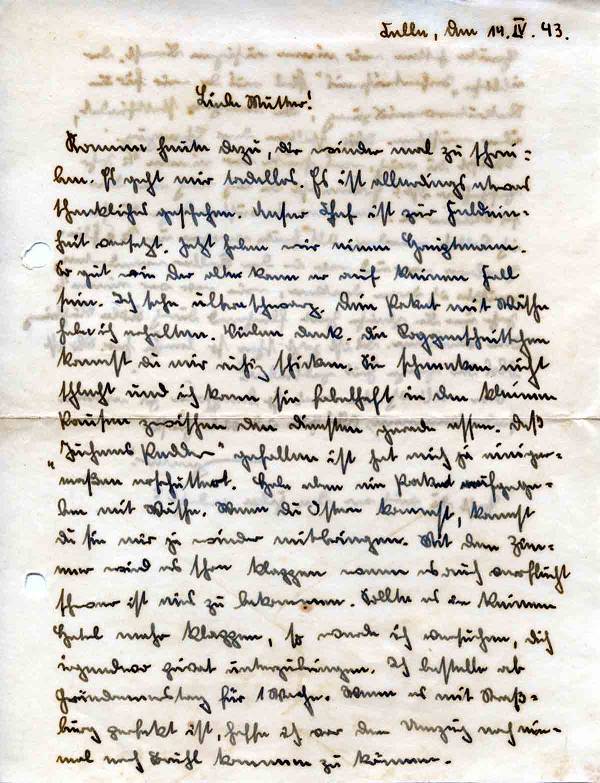 Fulln, den 14. IV. 43.
Liebe Mutter!
Komme heute dazu, dir wieder mal zu schrei-
ben. Es geht mir tadellos. Es ist allerdings etwas
schreckliches geschehen. Unser Chef ist zur Feldein-
heit versetzt. Jetzt haben wir einen Hauptmann.
So gut wie der alte kann er auf keinen Fall
sein. Ich sehe überschwarz. Dein Paket mit Wäsche
habe ich erhalten. Vielen Dank. Die Roggenschnittchen
kannst du mir ruhig schicken. Sie schmecken nicht
schlecht und ich kann sie fabelhaft in den kleinen
Pausen zwischen den Diensten gerade essen. Daß
"Jochens Pudder" gefallen ist hat mich ja einiger-
maßen erschüttert. Habe eben ein Paket aufgege-
ben mit Wäsche. Wenn du Ostern kommst, kannst
du sie mir ja wieder mitbringen. Mit dem Zim-
mer wird es schon klappen wenn es auch verflucht
schwer ist eins zu bekommen. Sollte es in keinem
Hotel mehr klappen, so werde ich versuchen, dich
irgendwo privat unterzubringen. Ich bestelle ab
Gründonnerstag für 1 Woche. Wenn es mit Straß-
burg perfekt ist, hoffe ich vor dem Umzug noch ein-
mal nach Brühl kommen zu können.